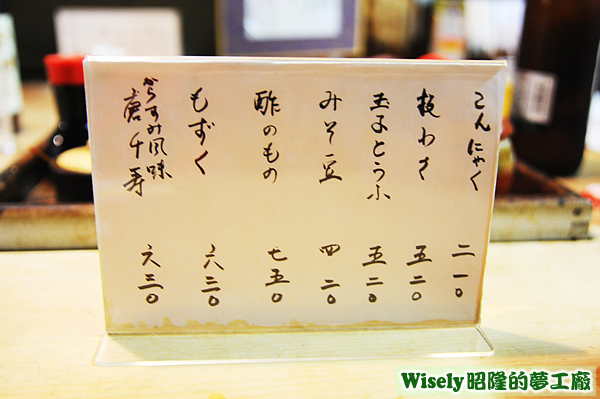 こんにゃく 二一〇
板わさ 五二〇
玉子とうふ 五二〇
みそ豆 四二〇
酢のもの 七五〇
もずく 六三〇
からすみ風味
唐千寿 六三〇
Wisely昭隆的夢工廠